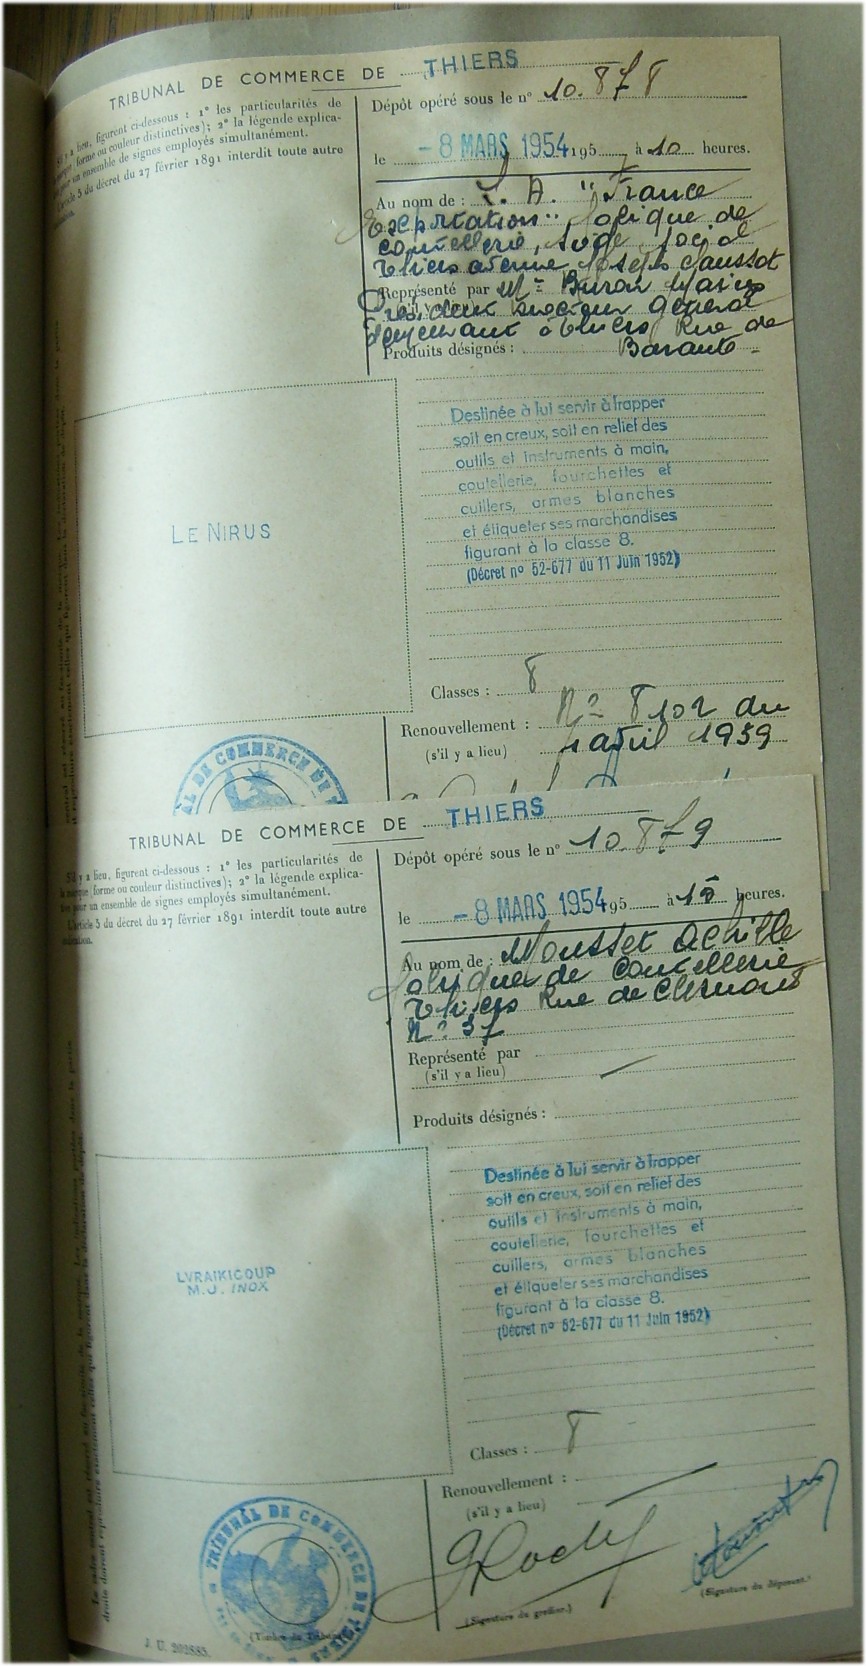 TRIBUNAL DE COMMERCE DE THIERS
figurent ci-dessous : 1° les particularités de
forme ou couleur distinctives); 2° la légende explica-
un ensemble de signes employés simultanément.
L'article 3 du décret du 27 février 1891 interdit toute autre
Dépôt opéré sous le n° 10.878
le - 8 MARS 1954 195 à 10 heures.
Au nom de : S. A. "France
Exportation" fabrique de
coutellerie, Siège social
Thiers avenue Joseph Claussat
Représenté par Mr Buron Marius
(s'il y a lieu)
Président Directeur général
demeurant à Thiers, Rue de
Produits désignés : Barante
LE NIRUS
Destinée à lui servir à frapper
soit en creux, soit en relief des
outils et instruments à main,
coutellerie, fourchettes et
cuillers, armes blanches
et étiqueter ses marchandises
figurant à la classe 8.
(Décret n° 52-677 du 11 Juin 1952)
Classes : 8
Renouvellement : N° 8102 du
(s'il y a lieu) avril 1939
TRIBUNAL DE COMMERCE DE THIERS
S'il y a lieu, figurent ci-dessous : 1° les particularités de
la marque (forme ou couleur distinctives); 2° la légende explica-
tive pour un ensemble de signes employés simultanément.
L'article 3 du décret du 27 février 1891 interdit toute autre
Dépôt opéré sous le n° 10.879
le - 8 MARS 1954 95 à 15 heures.
Au nom de : Mousset Achille
fabrique de Coutellerie
Thiers Rue de Clermont
N° 37
Représenté par
(s'il y a lieu)
Produits désignés :
LVRAIKICOUP
M.J. INOX
Destinée à lui servir à frapper
soit en creux, soit en relief des
outils et instruments à main,
coutellerie, fourchettes et
cuillers, armes blanches
et étiqueter ses marchandises
figurant à la classe 8.
(Décret n° 52-677 du 11 Juin 1952)
Classes : 8
Renouvellement :
(s'il y a lieu)
TRIBUNAL DE COMMERCE DE THIERS
(Timbre du Tribunal)
(Signature du greffier.)
(Signature du déposant.)
J. U. 202885.